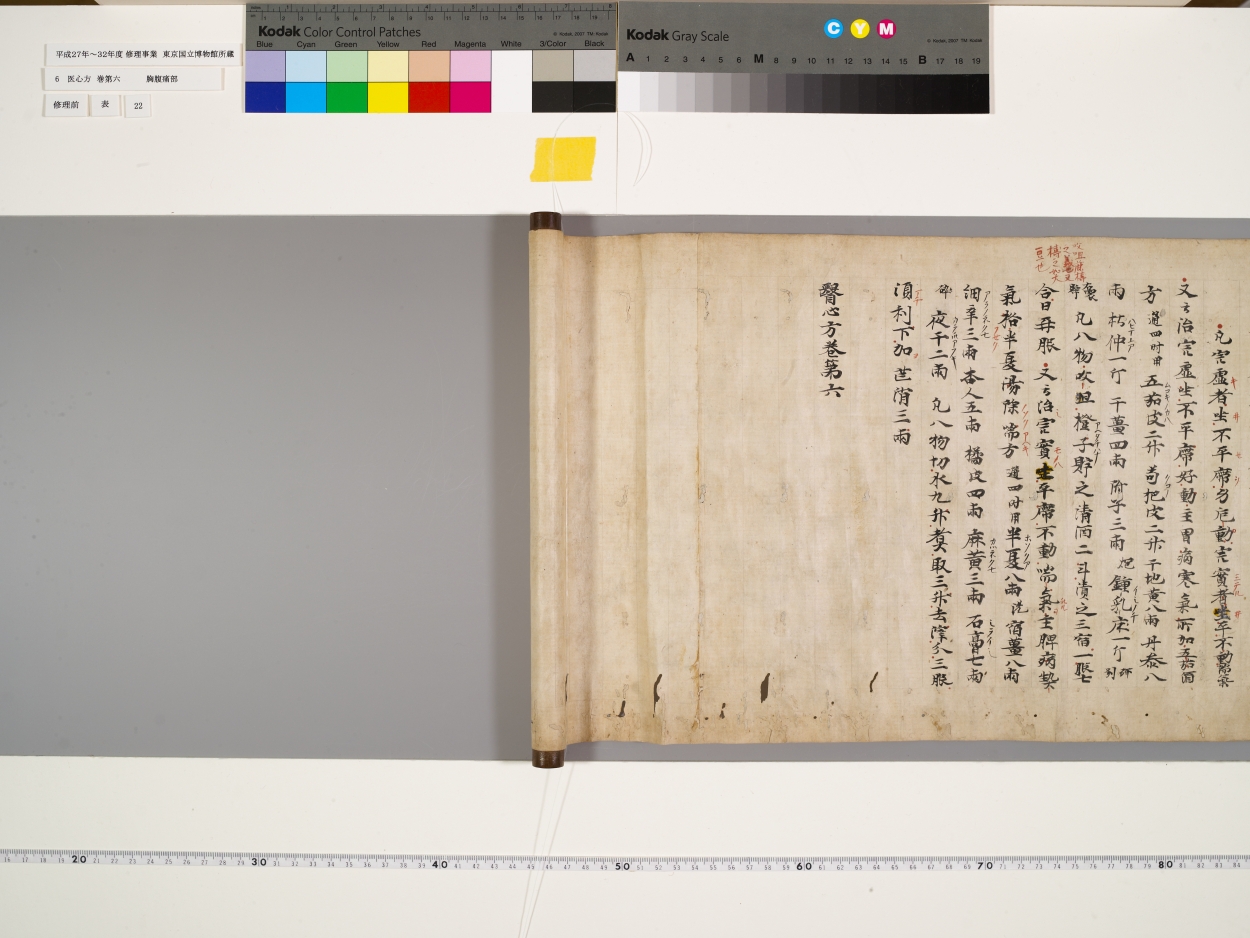 平成27年～32年度 修理事業 東京国立博物館所蔵
6 医心方 巻第六 胸腹痛部
修理前 表 22
Kodak Color Control Patches
© Kodak, 2007 TM: Kodak
Blue Cyan Green Yellow Red Magenta White 3/Color Black
Kodak Gray Scale
C Y M
© Kodak, 2007 TM: Kodak
A 1 2 3 4 5 6 M 8 9 10 11 12 13 14 15 B 17 18 19
凡宍虚者坐不平席好動宍實者坐平不動喘氣
又云治宍虚坐不平席好動主胃病寒氣所加五茄酒
方 通四时用 五茄皮二升 苟杞皮二升 干地黄八兩 丹参八
兩 杜仲一斤 干薑四兩 附子三兩 炮 鍾乳床一斤
凡八物㕮咀橙子貯之清酒二斗漬之三宿一服七
合日再服 又云治宍實坐平席不動喘氣主脾病熱
氣格半夏湯除喘方 通四时用 半夏八兩 洗 宿薑八兩
細辛三兩 杏人五兩 橘皮四兩 麻黄三兩 石膏七兩
碎 夜干二兩 凡八物切水九升煮取三升去滓分三服
須利下加芒消三兩
醫心方卷第六
20 30 40 50 60 70 80